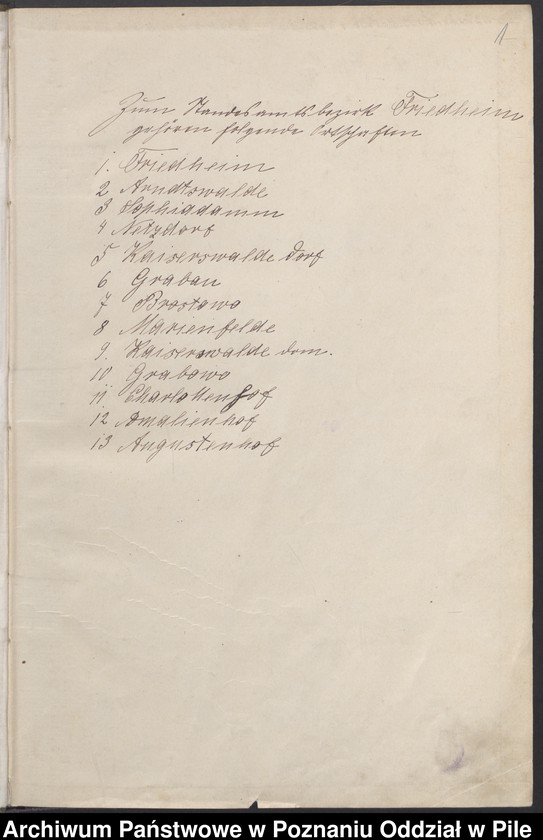 1
Zum Standesamtsbezirk Friedheim
gehören folgende Ortschaften
1. Friedheim
2 Arndtswalde
3 Sophiadamm
4 Netzdorf
5 Kaiserswalde Dorf
6 Grabau
7 Brostowo
8 Marienfelde
9. Kaiserswalde dom.
10 Grabowo
11 Charlottenhof
12 Amalienhof
13 Augustenhof
Archiwum Państwowe w Poznaniu Oddział w Pile